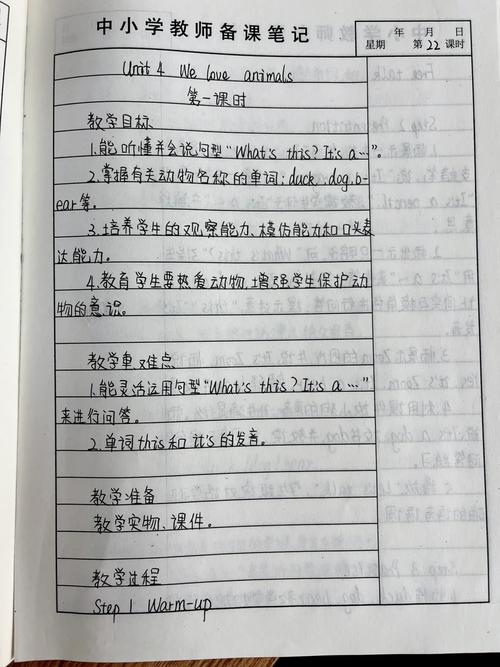 中小学教师备课笔记
年 月 日
星期 第22课时
Unit 4 We love animals
第一课时
教学目标
1.能听懂并会说句型“What's this? It's a …”。
2.掌握有关动物名称的单词:duck、dog.b-
ear等。
3.培养学生的观察能力、模仿能力和口头表
达能力。
4.教育学生要热爱动物,增强学生保护动
物的意识。
教学重、难点
1.能灵活运用句型“What's this? It's a …”
来进行问答。
2.单词this和it's的发音。
教学准备
教学实物、课件。
教学过程
Step 1 Warm-up